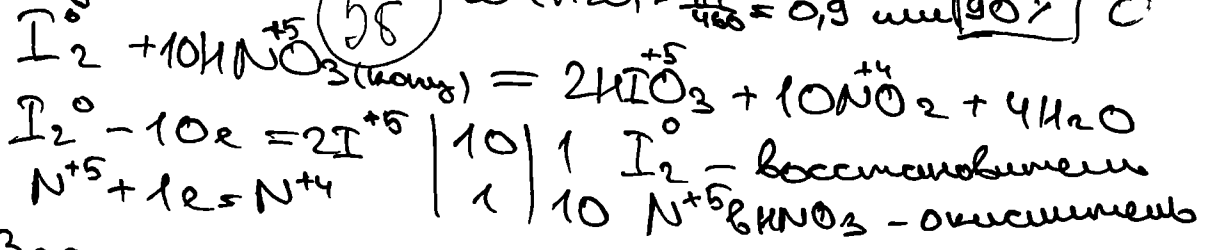 = 0,9 или 90% С
38
I₂⁰ + 10HN⁺⁵O₃(конц) = 2HI⁺⁵O₃ + 10N⁺⁴O₂ + 4H₂O
I₂⁰ - 10e = 2I⁺⁵ | 10 | 1 I₂⁰ - восстановитель
N⁺⁵ + 1e = N⁺⁴ | 1 | 10 N⁺⁵ в HNO₃ - окислитель